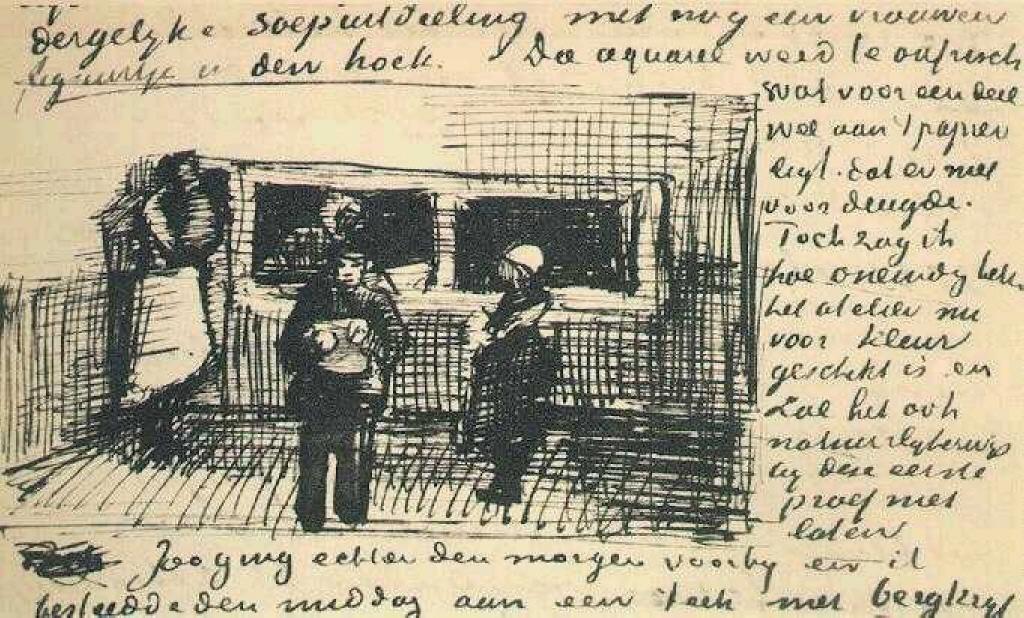 dergelyke soepuitdeeling met nog een vrouwen
figuurtje in den hoek. Die aquarel werd te onfrisch
wat voor een deel
wel aan 't papier
ligt. dat er niet
voor deugde.
Toch zag ik
hoe oneindig beter
het atelier nu
voor kleur
geschikt is en
zal het ook
natuurlykerwys
by deze eerste
proef niet
laten
Zoo ging echter den morgen voorby en ik
besteedde den middag aan een teek met bergkryt